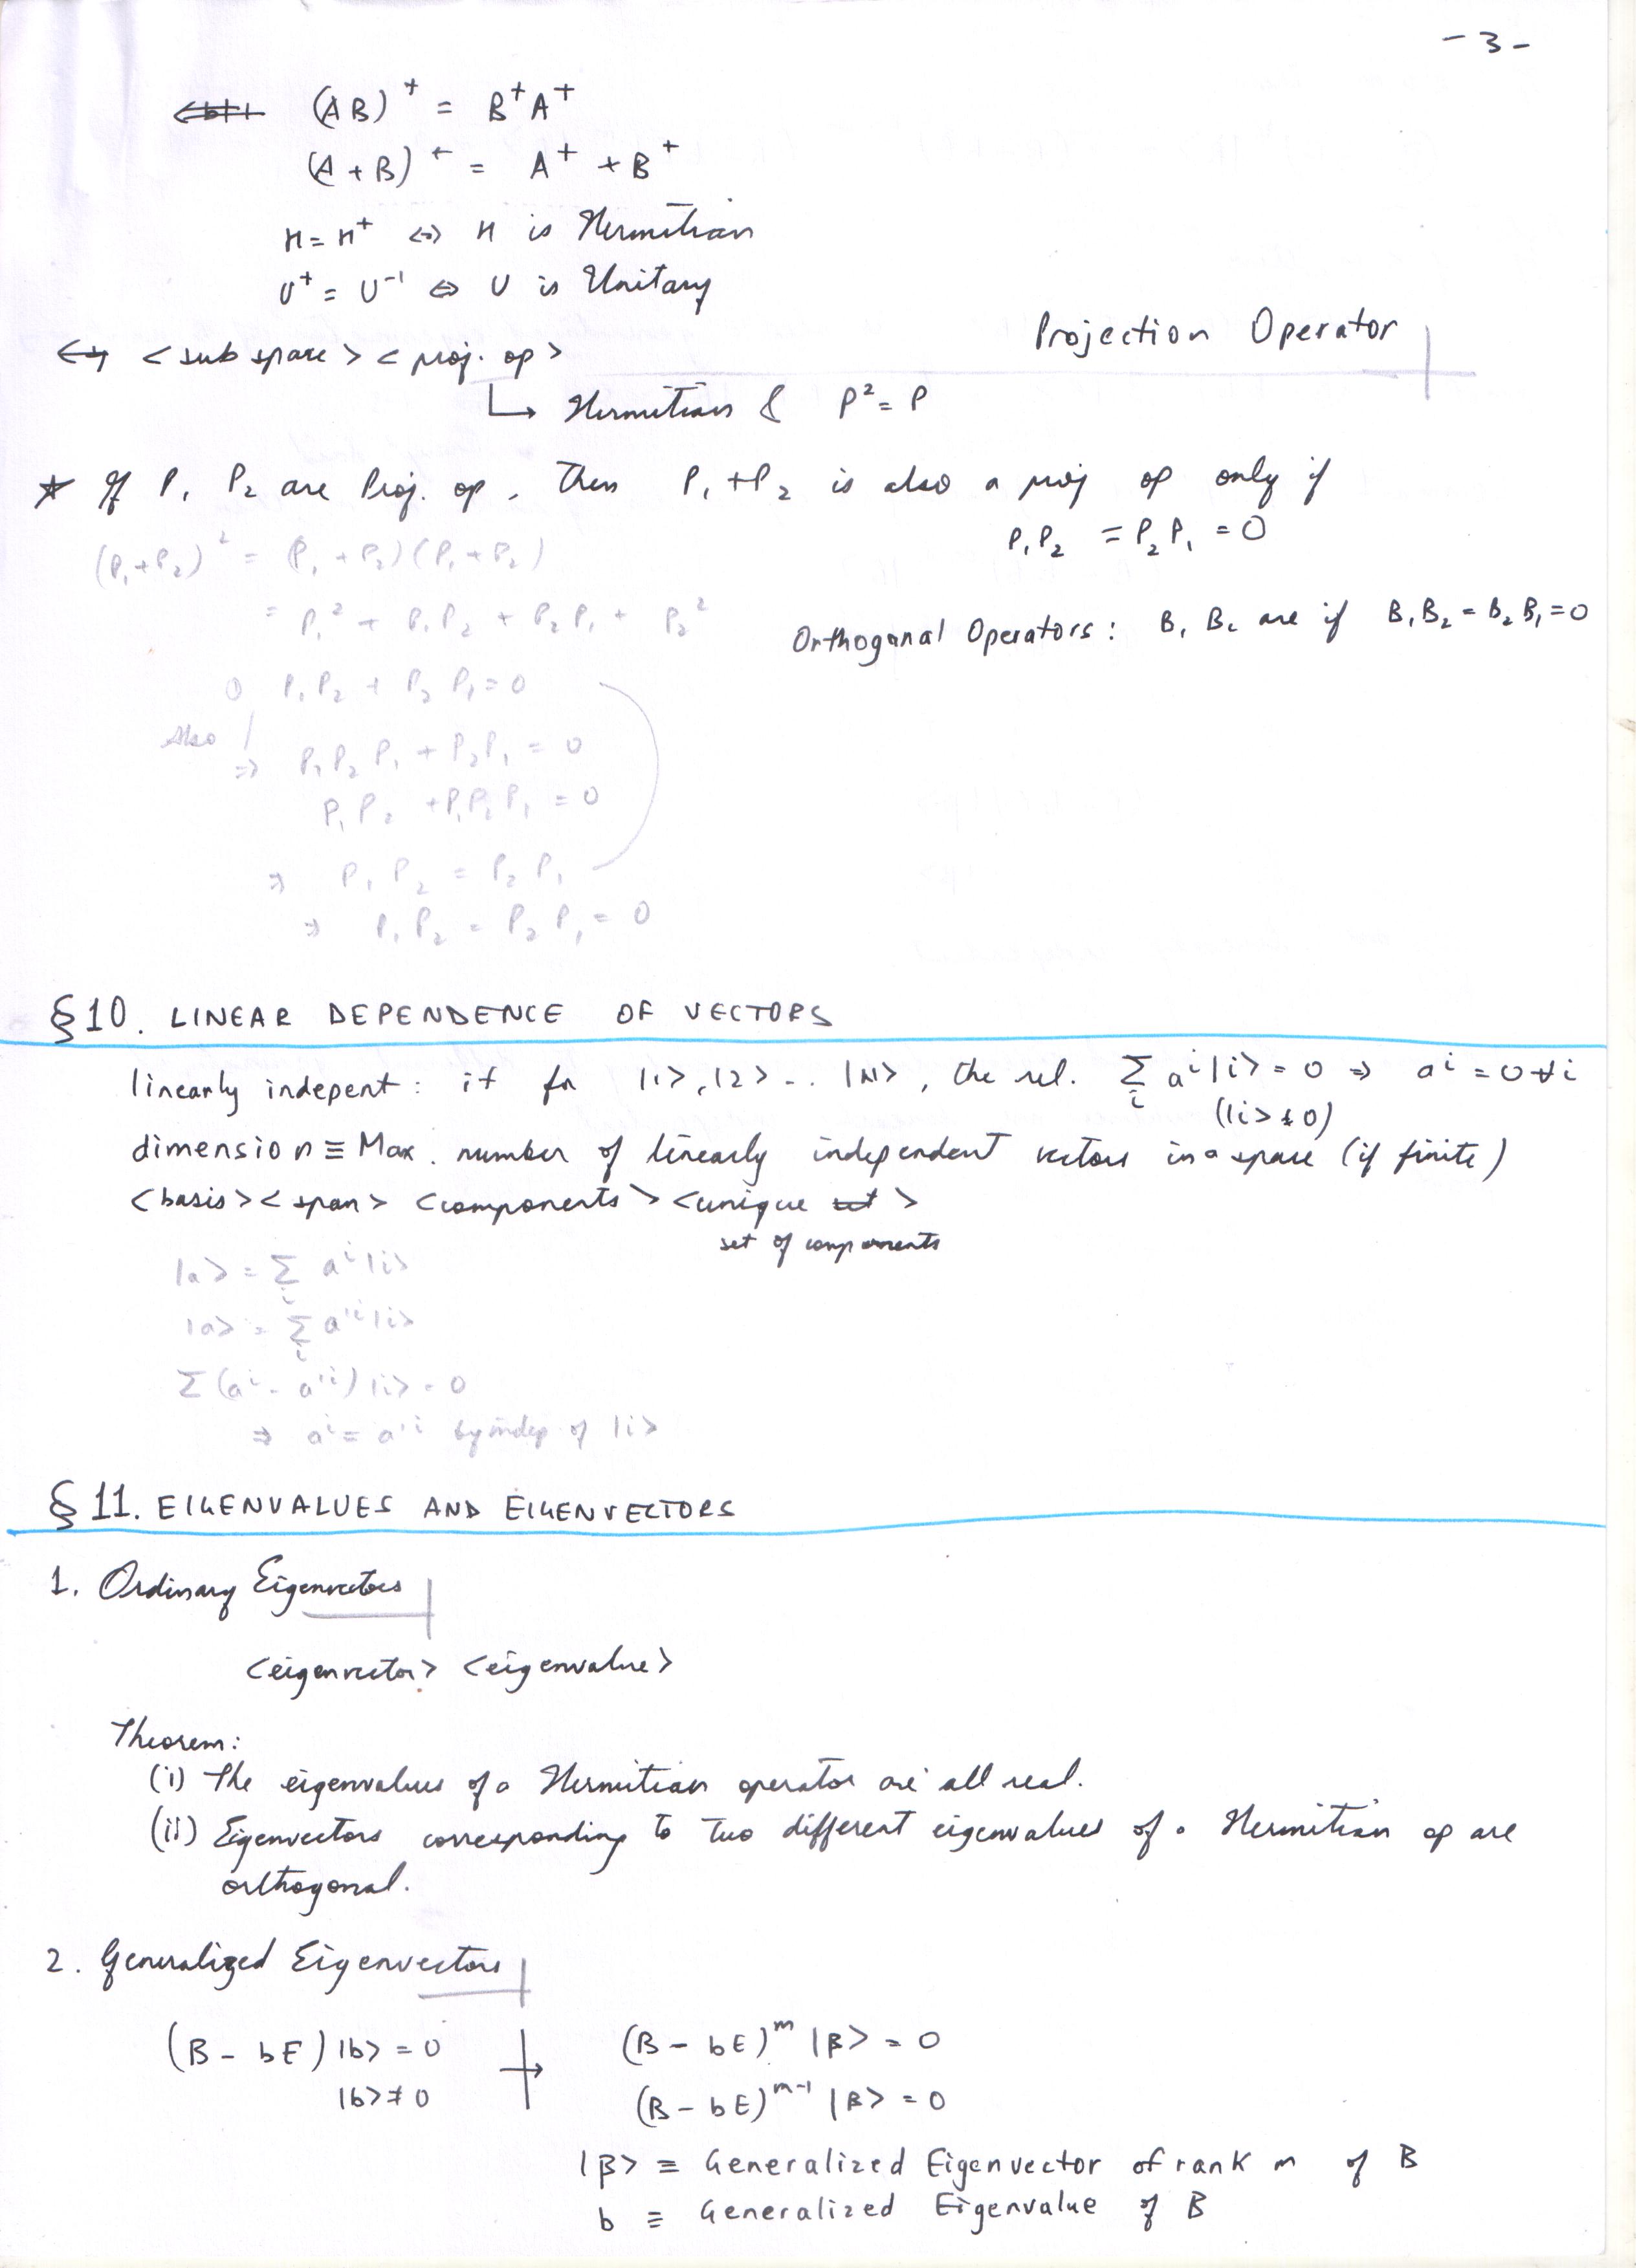 -3-
(AB)⁺ = B⁺A⁺
(A+B)⁺ = A⁺ + B⁺
H = H⁺ ⇔ H is Hermitian
U⁺ = U⁻¹ ⇔ U is Unitary
Projection Operator
<subspace> <proj. op>
↳ Hermitian & P² = P
★ If P₁ P₂ are Proj. op, then P₁+P₂ is also a proj op only if
P₁P₂ = P₂P₁ = 0
(P₁+P₂)² = (P₁+P₂)(P₁+P₂)
= P₁² + P₁P₂ + P₂P₁ + P₂²
Orthogonal Operators: B₁ B₂ are if B₁B₂ = B₂B₁ = 0
P₁P₂ + P₂P₁ = 0
Also
⇒ P₁P₂P₁ + P₂P₁ = 0
P₁P₂ + P₁P₂P₁ = 0
⇒ P₁P₂ = P₂P₁
⇒ P₁P₂ = P₂P₁ = 0
§10. LINEAR DEPENDENCE OF VECTORS
linearly indepent: if for |1>, |2> .. |N>, the rel. Σᵢ aⁱ|i> = 0 ⇒ aⁱ = 0 ∀i
(|i> ≠ 0)
dimension ≡ Max. number of linearly independent vectors in a space (if finite)
<basis> <span> <components> <unique set>
set of components
|a> = Σᵢ aⁱ|i>
|a> = Σᵢ a'ⁱ|i>
Σ(aⁱ - a'ⁱ)|i> = 0
⇒ aⁱ = a'ⁱ by indep of |i>
§11. EIGENVALUES AND EIGENVECTORS
1. Ordinary Eigenvectors
<eigenvector> <eigenvalue>
Theorem:
(i) The eigenvalues of a Hermitian operator are all real.
(ii) Eigenvectors corresponding to two different eigenvalues of a Hermitian op are
orthogonal.
2. Generalized Eigenvectors
(B - bE)|b> = 0 (B - bE)ᵐ |β> = 0
|b> ≠ 0 (B - bE)ᵐ⁻¹ |β> = 0
|β> ≡ Generalized Eigenvector of rank m of B
b ≡ Generalized Eigenvalue of B